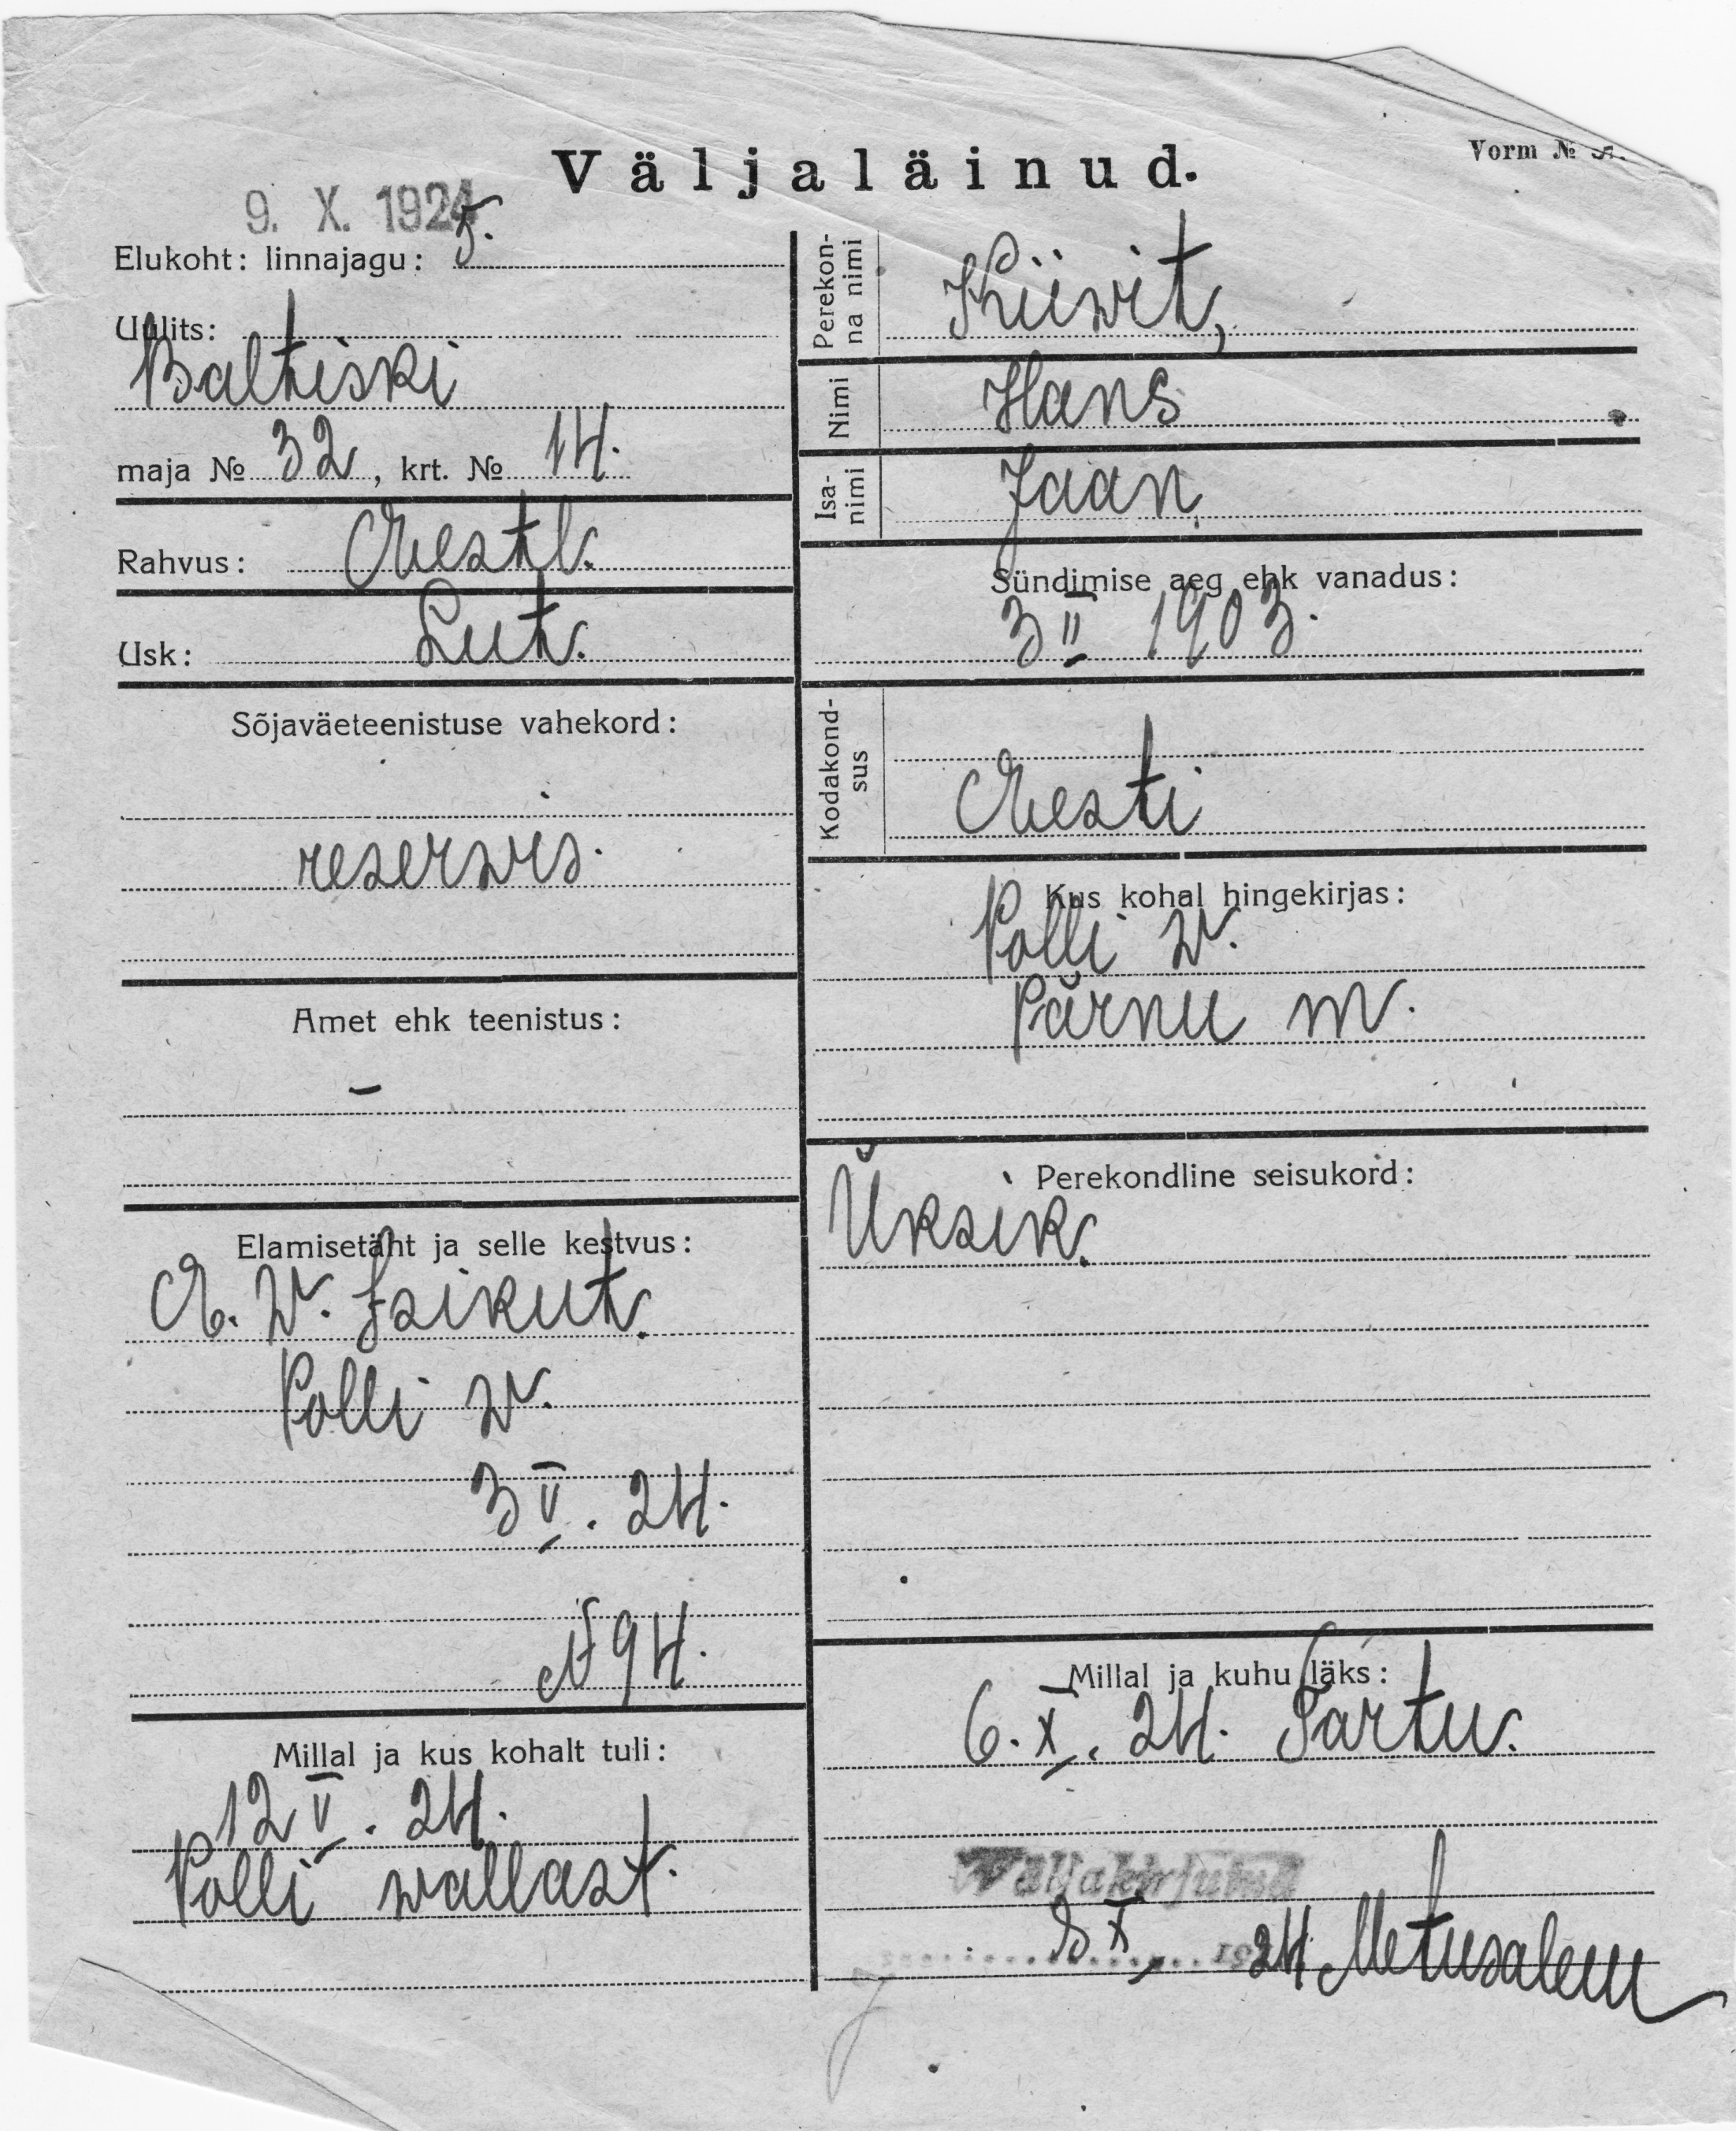 Väljaläinud.
Vorm №
9. X. 1924
Elukoht: linnajagu: 5.
Uulits:
Baltiski
maja № 32, krt. № 14.
Rahvus: Eestl.
Usk: Lut.
Sõjaväeteenistuse vahekord:
reserwis.
Amet ehk teenistus:
–
Elamisetäht ja selle kestvus:
E. W. Isikut.
Polli w.
3 V. 24.
N 94.
Millal ja kus kohalt tuli:
12 V. 24.
Polli wallast.
Perekon-
na nimi
Kiiwit,
Nimi
Hans
Isa-
nimi
Jaan.
Sündimise aeg ehk vanadus:
3 II 1903.
Kodakond-
sus
Eesti
Kus kohal hingekirjas:
Polli w.
Pärnu m.
Perekondline seisukord:
Üksik.
Millal ja kuhu läks:
6. X. 24. Tartu.
Väljakirjutud
8 X 24 Metusalem